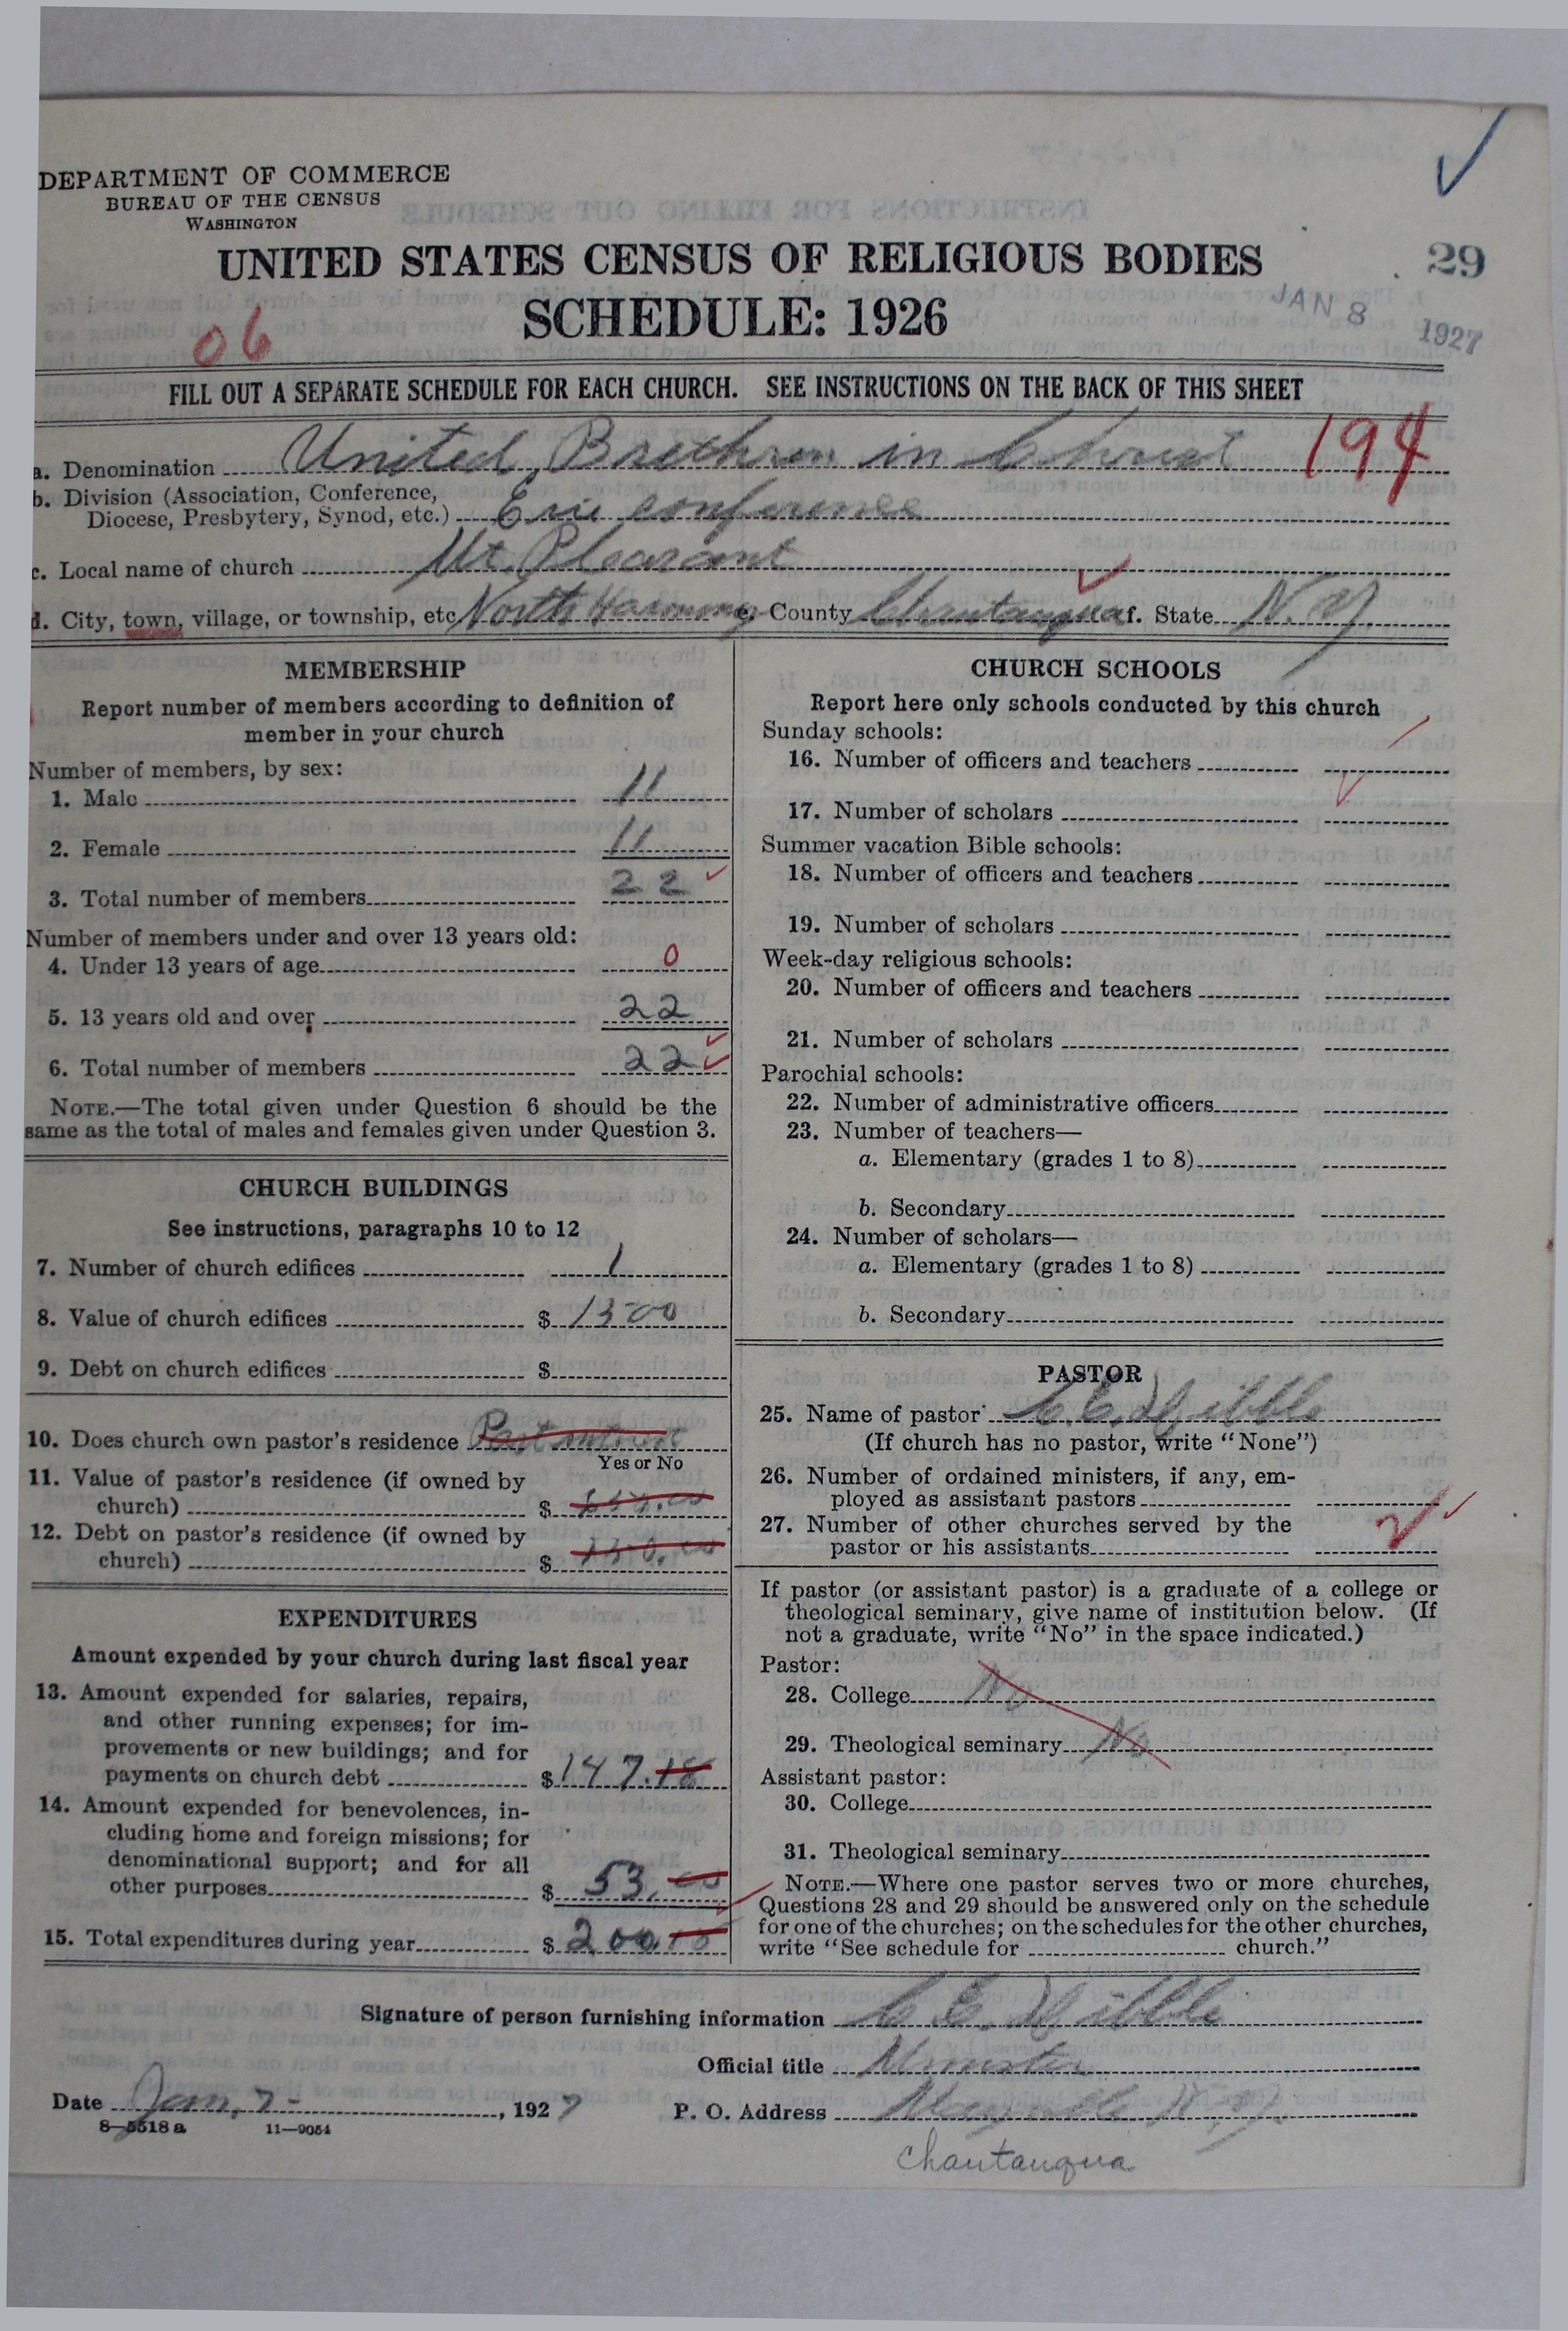 DEPARTMENT OF COMMERCE
BUREAU OF THE CENSUS
WASHINGTON
UNITED STATES CENSUS OF RELIGIOUS BODIES
29
SCHEDULE: 1926
JAN 8 1927
06
FILL OUT A SEPARATE SCHEDULE FOR EACH CHURCH. SEE INSTRUCTIONS ON THE BACK OF THIS SHEET
a. Denomination United Brethren in Christ 194
b. Division (Association, Conference,
Diocese, Presbytery, Synod, etc.) Erie conference
c. Local name of church Mt. Pleasant
d. City, town, village, or township, etc North Harmony e. County Chautauqua f. State N.Y.
MEMBERSHIP
Report number of members according to definition of
member in your church
Number of members, by sex:
1. Male 11
2. Female 11
3. Total number of members 22
Number of members under and over 13 years old:
4. Under 13 years of age 0
5. 13 years old and over 22
6. Total number of members 22
NOTE.—The total given under Question 6 should be the
same as the total of males and females given under Question 3.
CHURCH BUILDINGS
See instructions, paragraphs 10 to 12
7. Number of church edifices 1
8. Value of church edifices $ 1300
9. Debt on church edifices $
10. Does church own pastor's residence
Yes or No
11. Value of pastor's residence (if owned by
church) $
12. Debt on pastor's residence (if owned by
church) $
EXPENDITURES
Amount expended by your church during last fiscal year
13. Amount expended for salaries, repairs,
and other running expenses; for im-
provements or new buildings; and for
payments on church debt $ 147.18
14. Amount expended for benevolences, in-
cluding home and foreign missions; for
denominational support; and for all
other purposes $ 53.00
15. Total expenditures during year $ 200.18
CHURCH SCHOOLS
Report here only schools conducted by this church
Sunday schools:
16. Number of officers and teachers
17. Number of scholars
Summer vacation Bible schools:
18. Number of officers and teachers
19. Number of scholars
Week-day religious schools:
20. Number of officers and teachers
21. Number of scholars
Parochial schools:
22. Number of administrative officers
23. Number of teachers—
a. Elementary (grades 1 to 8)
b. Secondary
24. Number of scholars—
a. Elementary (grades 1 to 8)
b. Secondary
PASTOR
25. Name of pastor C. C.
(If church has no pastor, write "None")
26. Number of ordained ministers, if any, em-
ployed as assistant pastors
27. Number of other churches served by the
pastor or his assistants 2
If pastor (or assistant pastor) is a graduate of a college or
theological seminary, give name of institution below. (If
not a graduate, write "No" in the space indicated.)
Pastor:
28. College No
29. Theological seminary No
Assistant pastor:
30. College
31. Theological seminary
NOTE.—Where one pastor serves two or more churches,
Questions 28 and 29 should be answered only on the schedule
for one of the churches; on the schedules for the other churches,
write "See schedule for church."
Signature of person furnishing information C. C.
Official title Minister
Date Jan. 7 - , 1927 P. O. Address Mayville N.Y.
8—5518 a 11—9054
Chautauqua